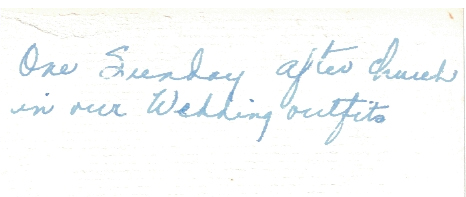 One Sunday after church
in our Wedding outfits